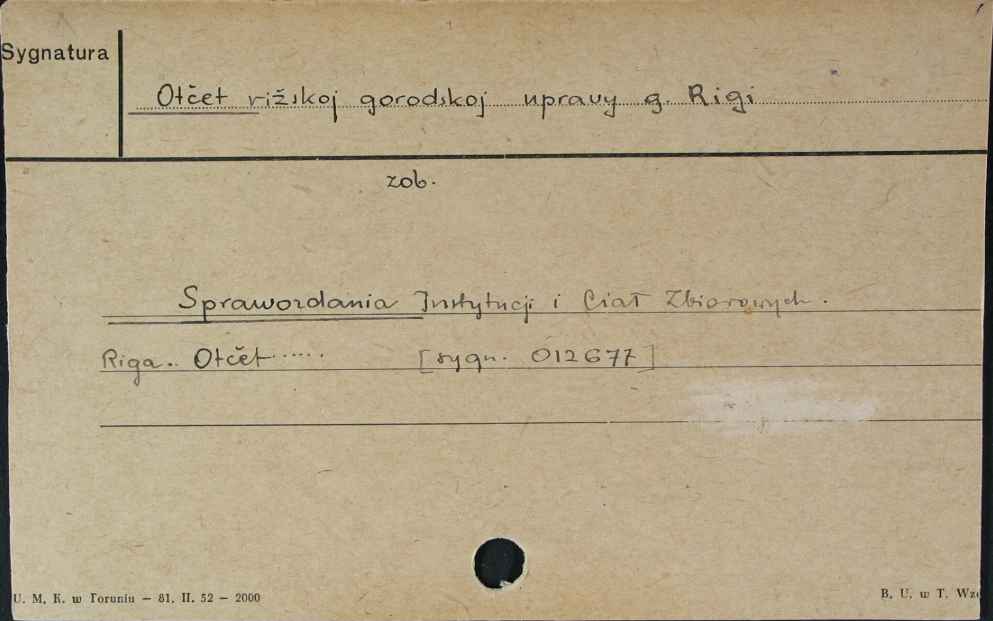 Sygnatura
Otčet rižskoj gorodskoj upravy g. Rigi
zob.
Sprawozdania Instytucji i Ciał Zbiorowych.
Riga.. Otčet...... [sygn. 012677]
U. M. K. w Toruniu — 81. II. 52 — 2000
B. U. w T. Wzó